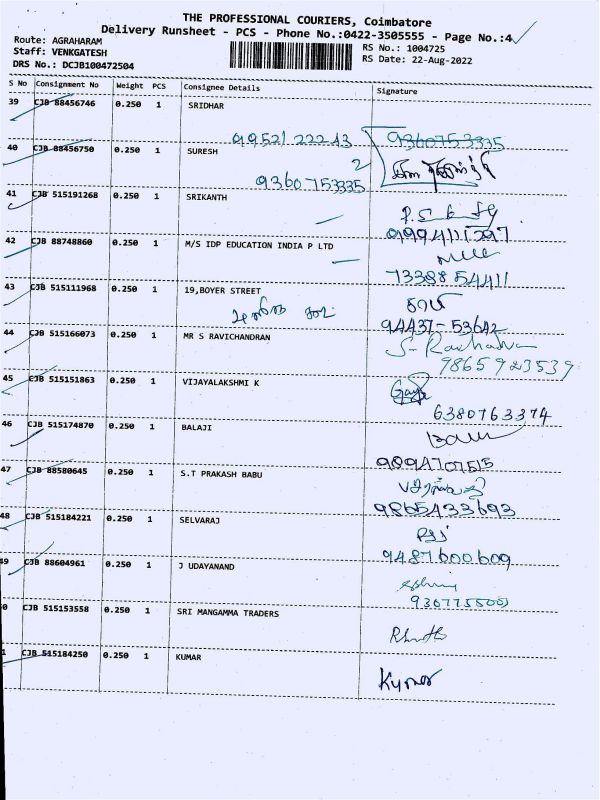 THE PROFESSIONAL COURIERS, Coimbatore
Delivery Runsheet - PCS - Phone No.:0422-3505555 - Page No.:4
Route: AGRAHARAM
RS No.: 1004725
Staff: VENKGATESH
RS Date: 22-Aug-2022
DRS No.: DCJB100472504
S No Consignment No Weight PCS Consignee Details Signature
39 CJB 88456746 0.250 1 SRIDHAR
99521 22213 9360753335
40 CJB 88456750 0.250 1 SURESH
9360753335
41 CJB 515191268 0.250 1 SRIKANTH
9994111297
42 CJB 88748860 0.250 1 M/S IDP EDUCATION INDIA P LTD
7338854411
43 CJB 515111968 0.250 1 19,BOYER STREET
94437-53642
44 CJB 515166073 0.250 1 MR S RAVICHANDRAN
9865923539
45 CJB 515151863 0.250 1 VIJAYALAKSHMI K
6380763374
46 CJB 515174870 0.250 1 BALAJI
9094707515
47 CJB 88580645 0.250 1 S.T PRAKASH BABU
9865433693
48 CJB 515184221 0.250 1 SELVARAJ
9487600609
49 CJB 88604961 0.250 1 J UDAYANAND
0 CJB 515153558 0.250 1 SRI MANGAMMA TRADERS
1 CJB 515184250 0.250 1 KUMAR
Kumar